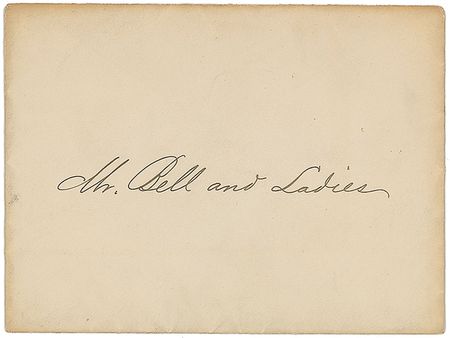 Mr. Bell and Ladies